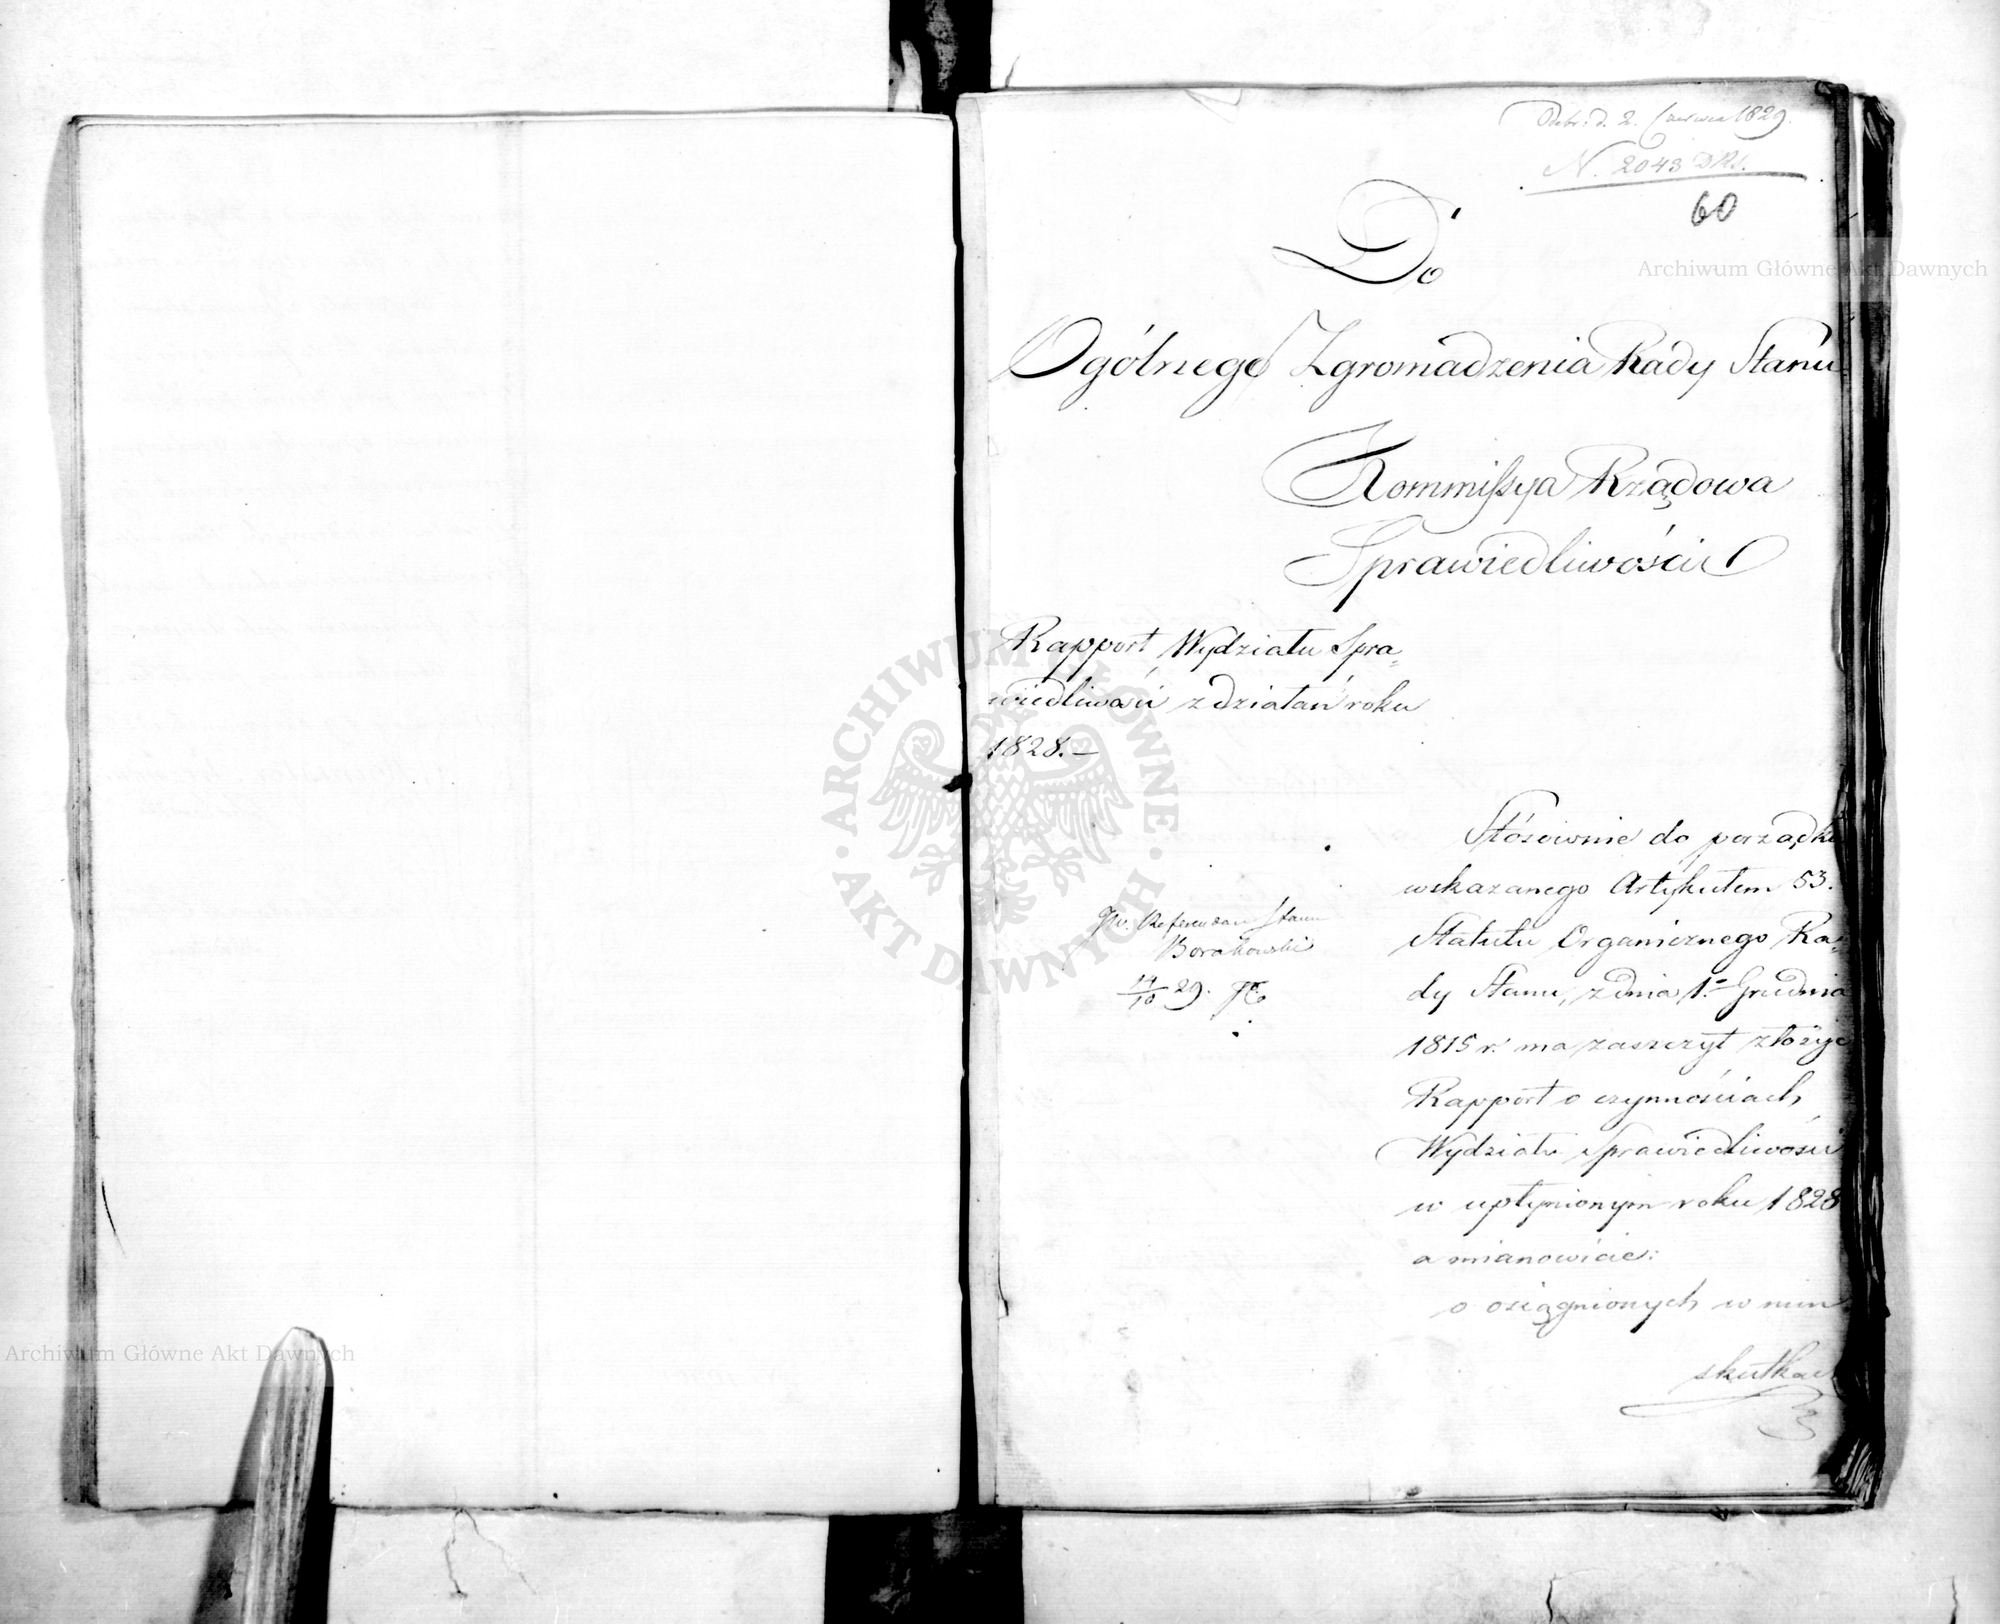 Odebr: d. 2. Czerwca 1829.
N. 2043 DRS.
60
Do
Ogólnego Zgromadzenia Rady Stanu
Kommissya Rządowa
Sprawiedliwości
Rapport Wydziału Spra„
wiedliwości z działań roku
1828.—
Stósownie do porządku
wskazanego Artykułem 53.
Statutu Organicznego Ra„
dy Stanu, z dnia 1. Grudnia
1815 r. ma zaszczyt złożyć
Rapport o czynnościach
Wydziału Sprawiedliwości
w upłynionym roku 1828
a mianowicie:
o osiągnionych w nim
skutkach
JW. Referendarz Stanu
Borakowski
14/10 29.
Archiwum Główne Akt Dawnych
Archiwum Główne Akt Dawnych
ARCHIWUM GŁÓWNE
AKT DAWNYCH